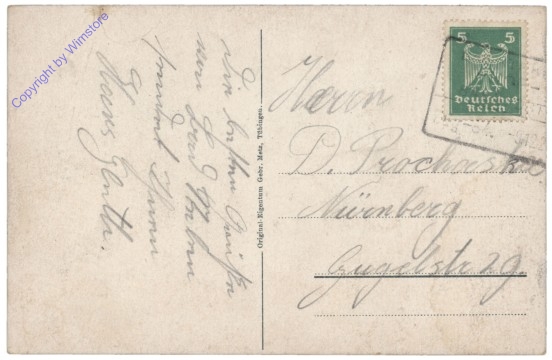 Copyright by Wimstore
Die besten Grüße
aus Bad
sendet Ihnen
Hans
Original-Eigentum Gebr. Metz, Tübingen.
5 5
Deutsches
Reich
Herrn
D. Prochaska
Nürnberg
Gugelstr 29.